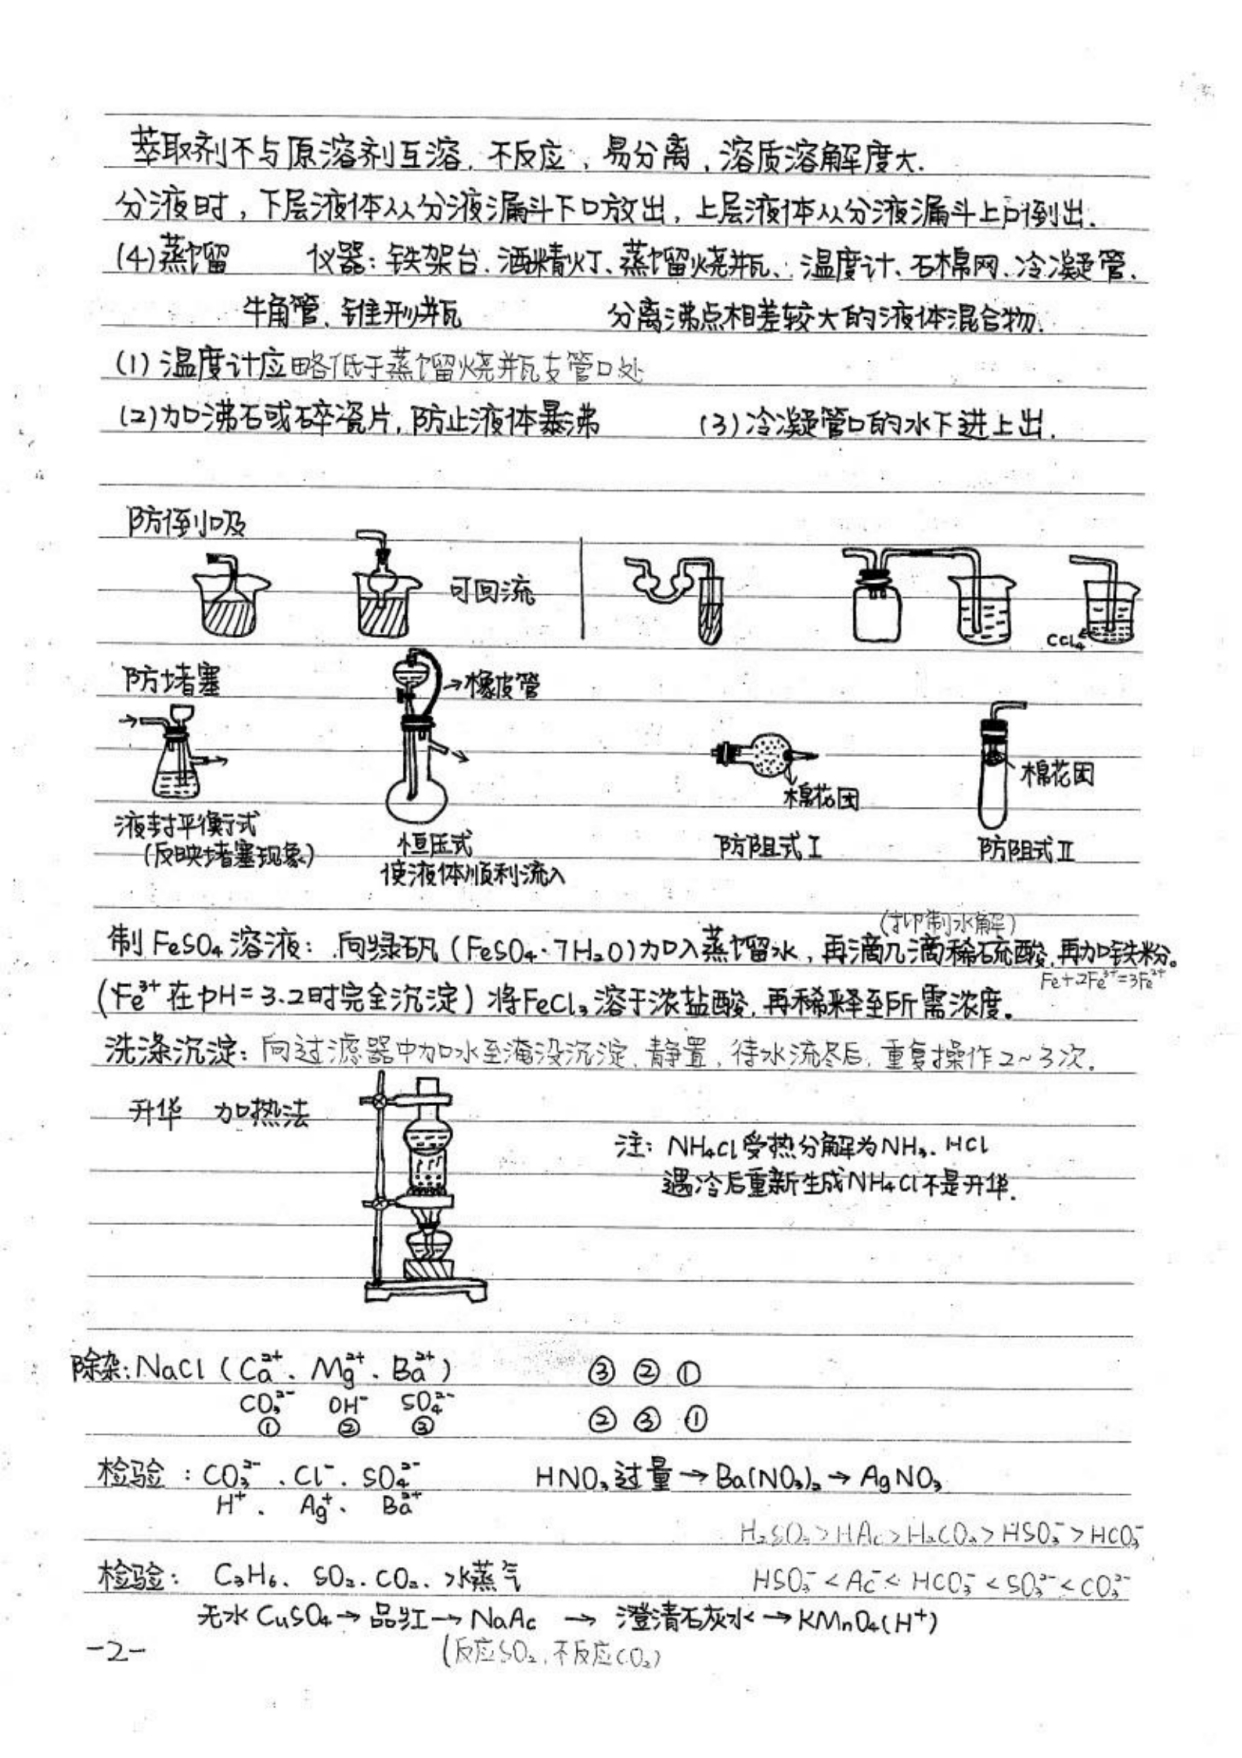 萃取剂不与原溶剂互溶、不反应、易分离、溶质溶解度大.
分液时，下层液体从分液漏斗下口放出，上层液体从分液漏斗上口倒出.
(4)蒸馏 仪器：铁架台、酒精灯、蒸馏烧瓶、温度计、石棉网、冷凝管、
牛角管、锥形瓶 分离沸点相差较大的液体混合物.
(1)温度计应略低于蒸馏烧瓶支管口处
(2)加沸石或碎瓷片,防止液体暴沸 (3)冷凝管口的水下进上出.
防倒吸
可回流
CCl₄
防堵塞
橡皮管
棉花团
棉花团
液封平衡式
(反映堵塞现象)
恒压式
使液体顺利流入
防阻式Ⅰ
防阻式Ⅱ
(抑制水解)
制FeSO₄溶液：向绿矾(FeSO₄·7H₂O)加入蒸馏水，再滴几滴稀硫酸,再加铁粉。
Fe+2Fe³⁺=3Fe²⁺
(Fe³⁺在pH=3.2时完全沉淀)将FeCl₃溶于浓盐酸,再稀释至所需浓度。
洗涤沉淀：向过滤器中加水至淹没沉淀、静置，待水流尽后,重复操作2~3次.
升华 加热法
注：NH₄Cl受热分解为NH₃、HCl
遇冷后重新生成NH₄Cl不是升华.
除杂:NaCl(Ca²⁺、Mg²⁺、Ba²⁺) ③ ② ①
CO₃²⁻ OH⁻ SO₄²⁻
① ② ③ ② ③ ①
检验：CO₃²⁻、Cl⁻、SO₄²⁻ HNO₃过量→Ba(NO₃)₂→AgNO₃
H⁺、Ag⁺、Ba²⁺
H₂SO₃>HAc>H₂CO₃>HSO₃⁻>HCO₃⁻
检验：C₃H₆、SO₂、CO₂、水蒸气 HSO₃⁻<Ac⁻<HCO₃⁻<SO₃²⁻<CO₃²⁻
无水CuSO₄→品红→NaAc→澄清石灰水→KMnO₄(H⁺)
(反应SO₂,不反应CO₂)
-2-